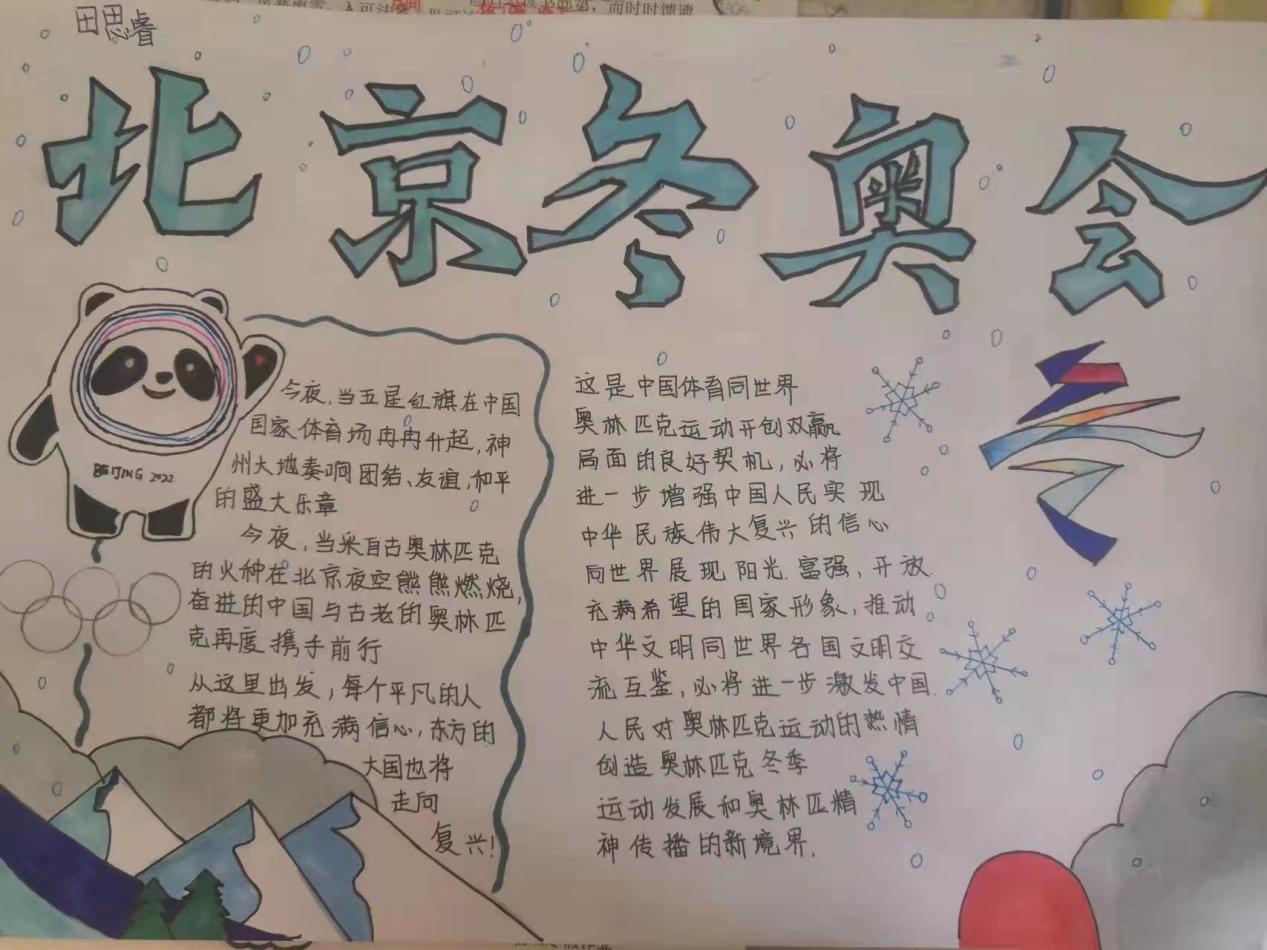 田思睿
北京冬奥会
BEIJING 2022
今夜,当五星红旗在中国
国家体育场冉冉升起,神
州大地奏响团结、友谊,和平
的盛大乐章
今夜,当来自古奥林匹克
的火种在北京夜空熊熊燃烧,
奋进的中国与古老的奥林匹
克再度携手前行
从这里出发,每个平凡的人
都将更加充满信心,东方的
大国也将
走向
复兴!
这是中国体育同世界
奥林匹克运动开创双赢
局面的良好契机,必将
进一步增强中国人民实现
中华民族伟大复兴的信心
向世界展现阳光.富强,开放
充满希望的国家形象,推动
中华文明同世界各国文明交
流互鉴,必将进一步激发中国
人民对奥林匹克运动的热情
创造奥林匹克冬季
运动发展和奥林匹精
神传播的新境界.